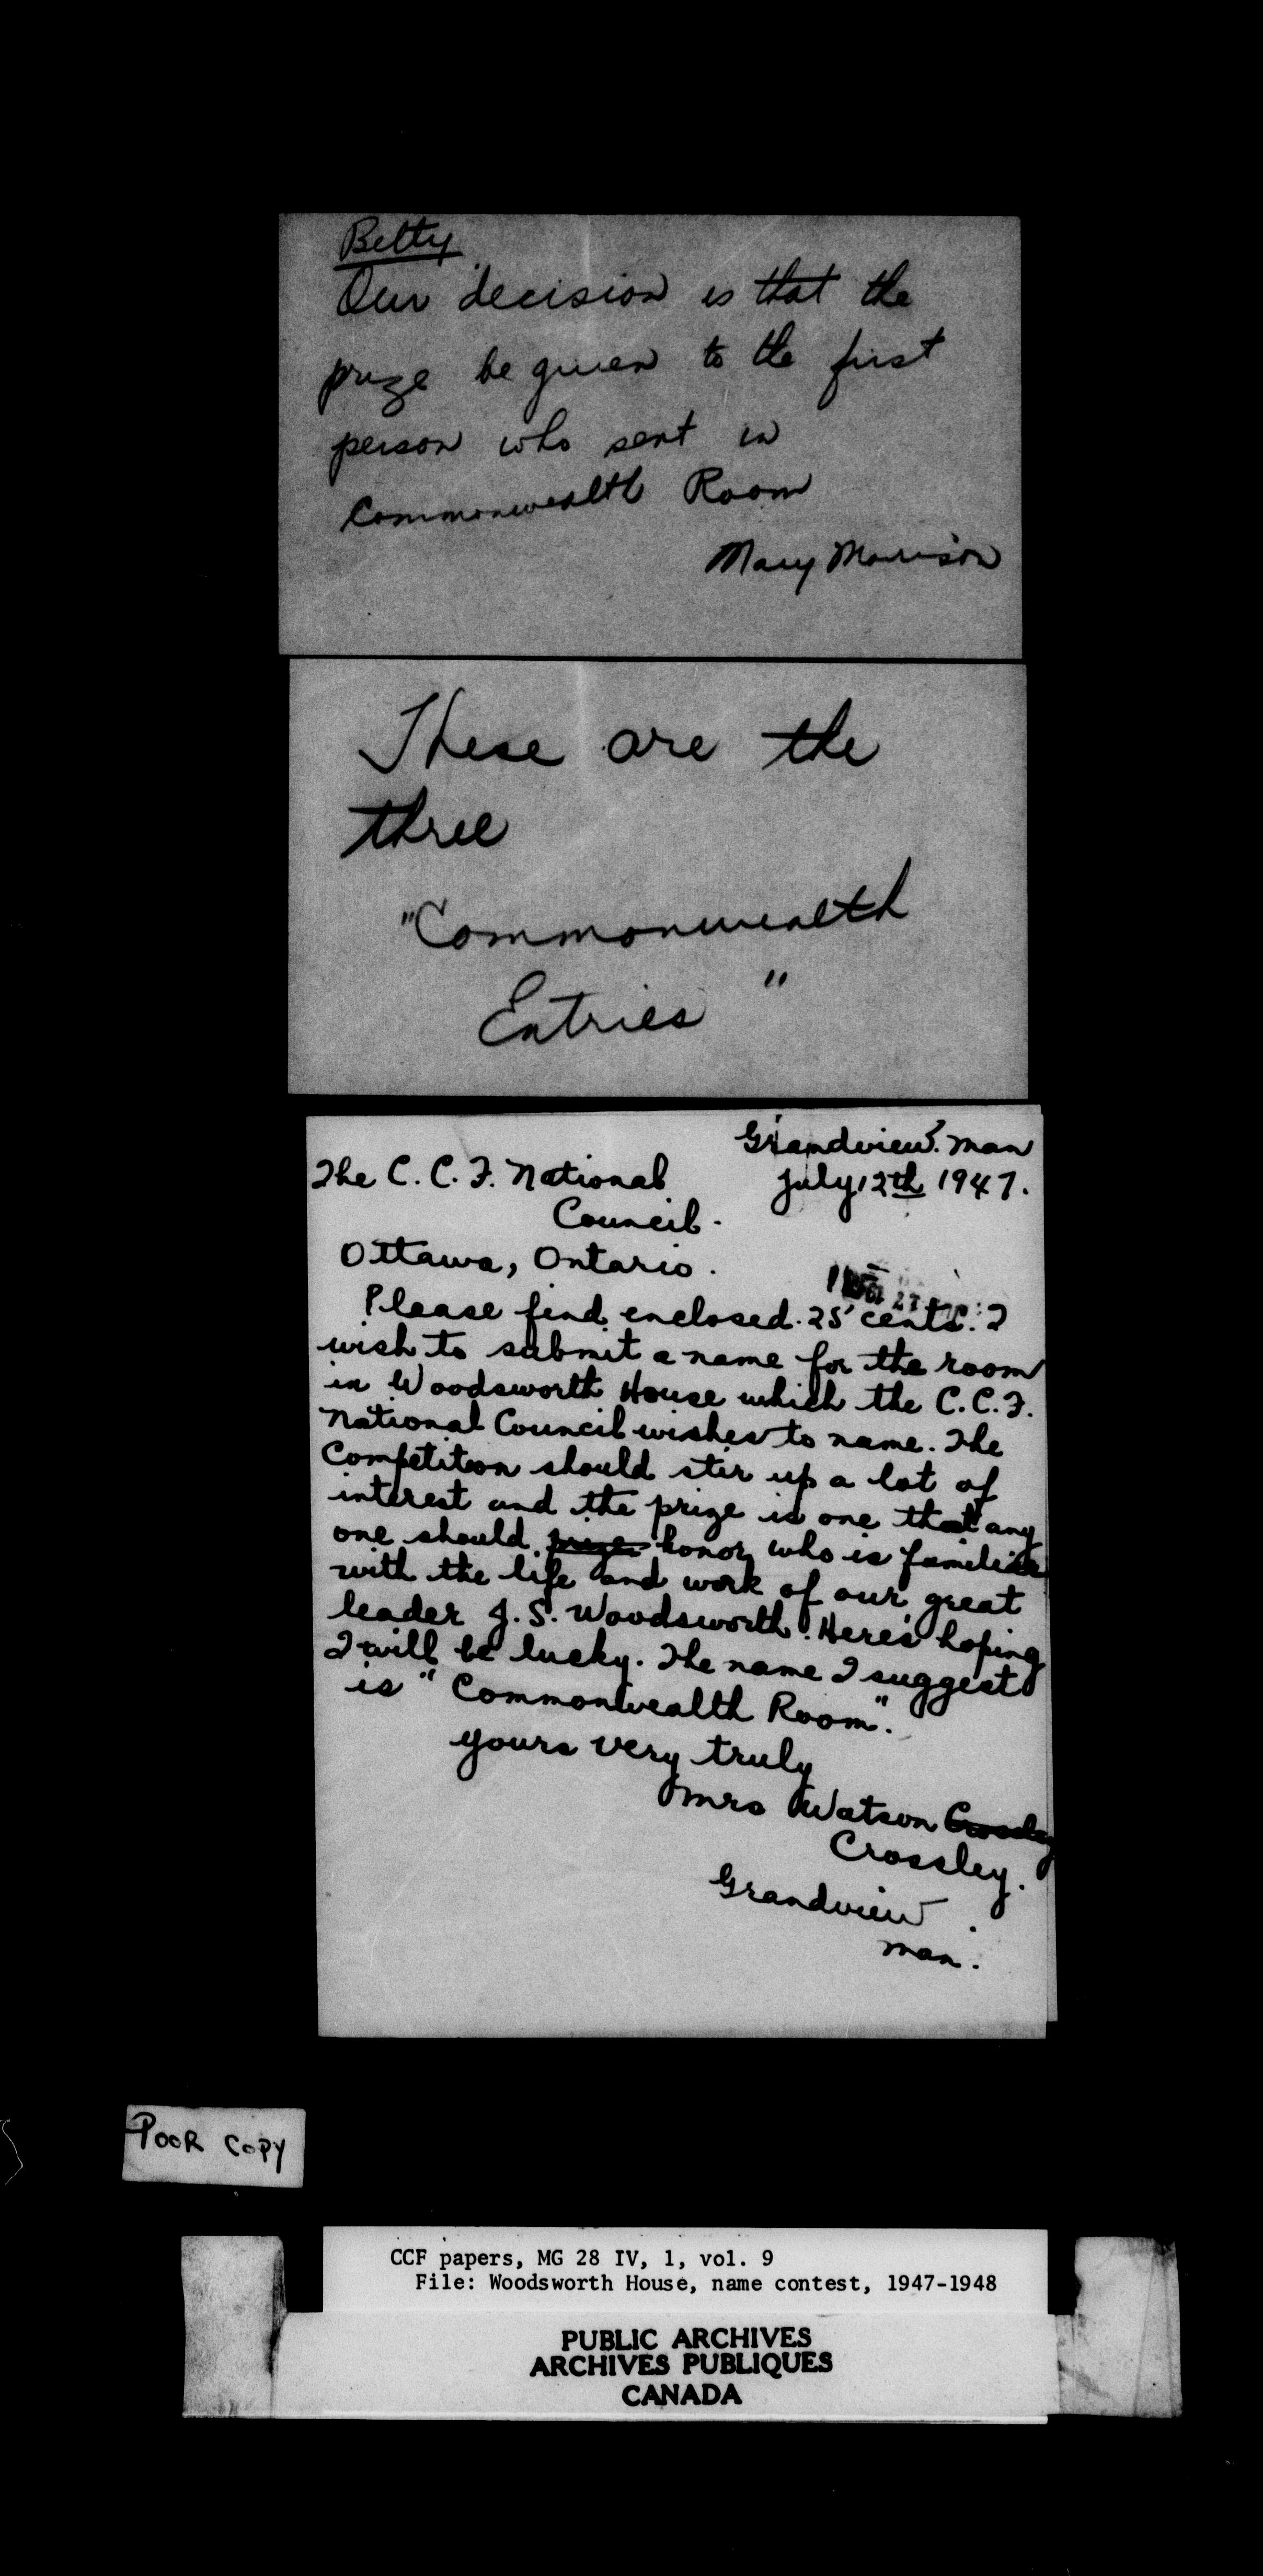 Betty
Our decision is that the
prize be given to the first
person who sent in
Commonwealth Room
Mary Morrison
These are the
three
"Commonwealth
Entries"
Grandview. Man
July 12th 1947.
The C. C. F. National
Council.
Ottawa, Ontario.
Please find enclosed 25 cents. I
wish to submit a name for the room
in Woodsworth House which the C.C.F.
National Council wishes to name. The
Competition should stir up a lot of
interest and the prize is one that any
one should prize honor who is familiar
with the life and work of our great
leader J. S. Woodsworth. Here's hoping
I will be lucky. The name I suggest
is "Commonwealth Room".
yours very truly
Mrs Watson Crossley
Crossley.
Grandview.
Man.
POOR COPY
CCF papers, MG 28 IV, 1, vol. 9
File: Woodsworth House, name contest, 1947-1948
PUBLIC ARCHIVES
ARCHIVES PUBLIQUES
CANADA